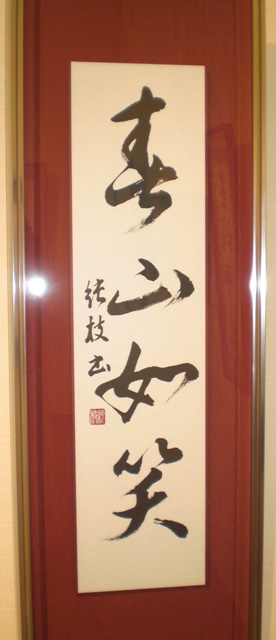 春山如笑
枝書